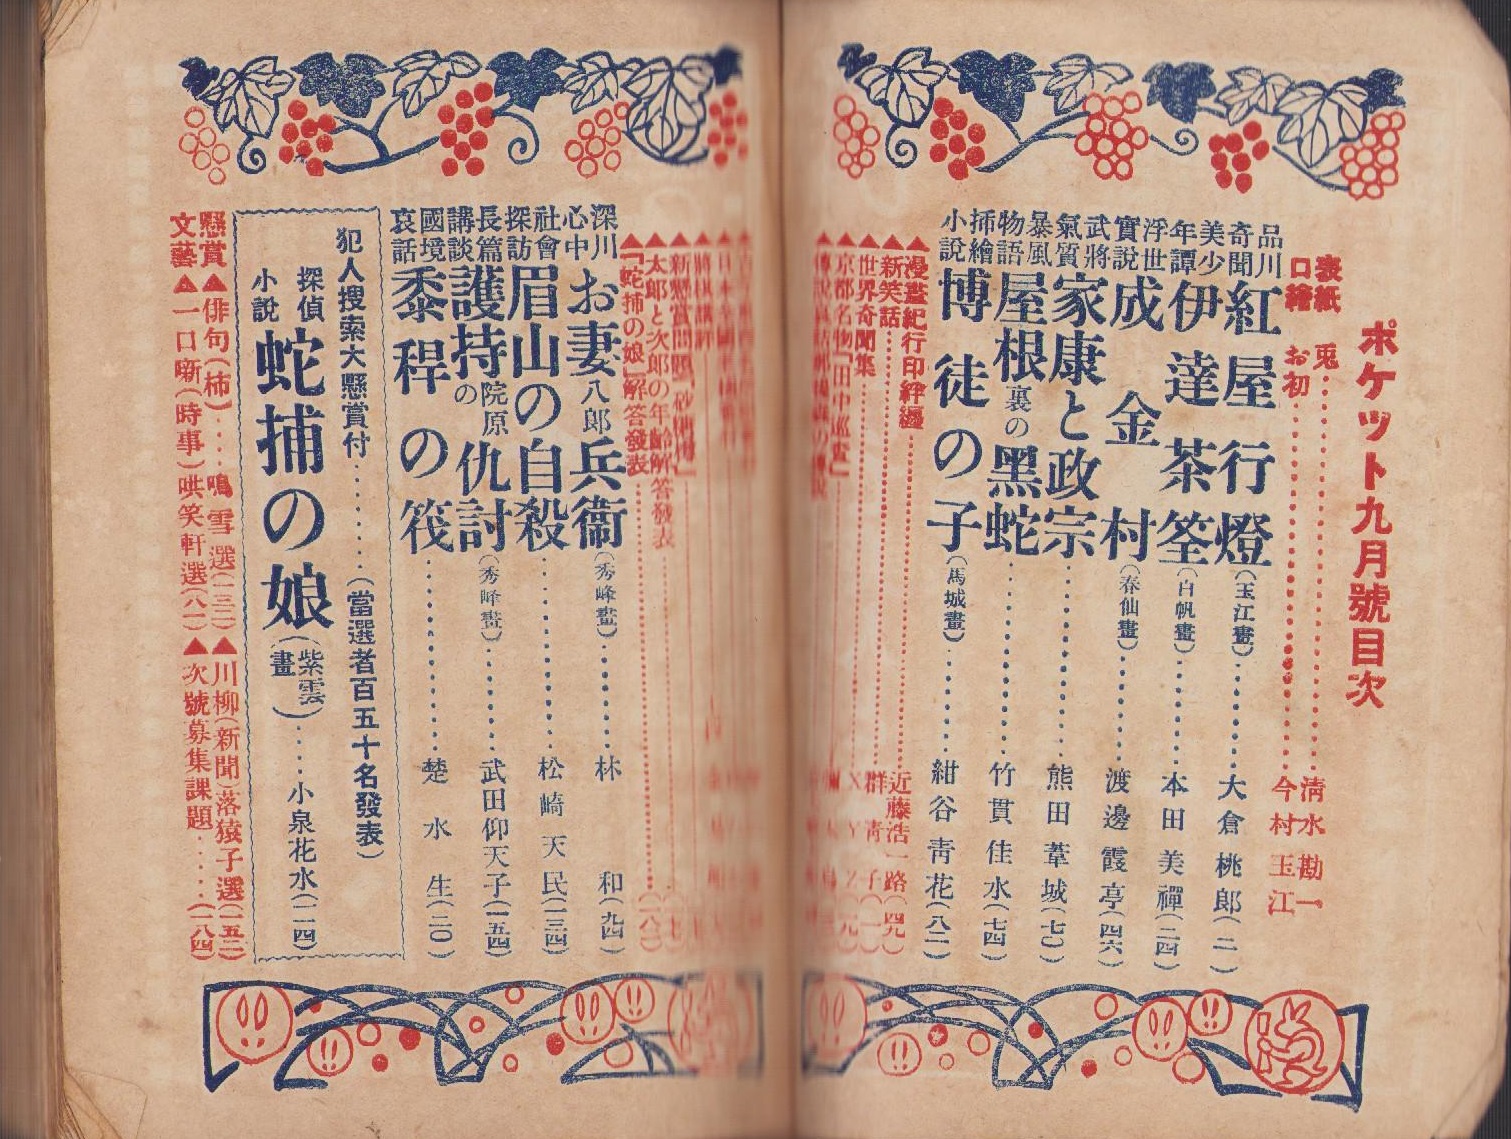 ポケット九月號目次
表紙 兎 清水勘一
口繪 お初 今村玉江
品川奇聞 紅屋行燈(玉江畫) 大倉桃郎(二)
美少年譚 伊達茶筌(白帆畫) 本田美禪(二四)
浮世實說 成金村(春仙畫) 渡邊霞亭(四六)
武將氣質 家康と政宗 熊田葦城(七〇)
暴風物語 屋根裏の黑蛇 竹貫佳水(七四)
揷繪小說 博徒の子(馬城畫) 紺谷靑花(八二)
▲漫畫紀行印絆纏 近藤浩一路(四九)
▲新笑話 群靑子(一一)
▲世界奇聞集 XYZ
▲京都名物「田中巡査」
▲將棋講評
▲新懸賞問題
▲太郎と次郎の年齡解答發表
▲「蛇捕の娘」解答發表 (一八三)
深川心中 お妻八郎兵衞(秀峰畫) 林和(九四)
社會探訪 眉山の自殺 松崎天民(一三四)
長篇講談 護持院原の仇討(秀峰畫) 武田仰天子(一五四)
國境哀話 黍稈の筏 楚水生(二〇)
犯人搜索大懸賞付 (當選者百五十名發表)
探偵小說 蛇捕の娘(紫雲畫) 小泉花水(二一四)
懸賞文藝 ▲俳句(柿) 鳴雪選(一三二) ▲川柳(新聞)落猿子選(一五二)
▲一口噺(時事)哄笑軒選(八一) ▲次號募集課題 (一八四)